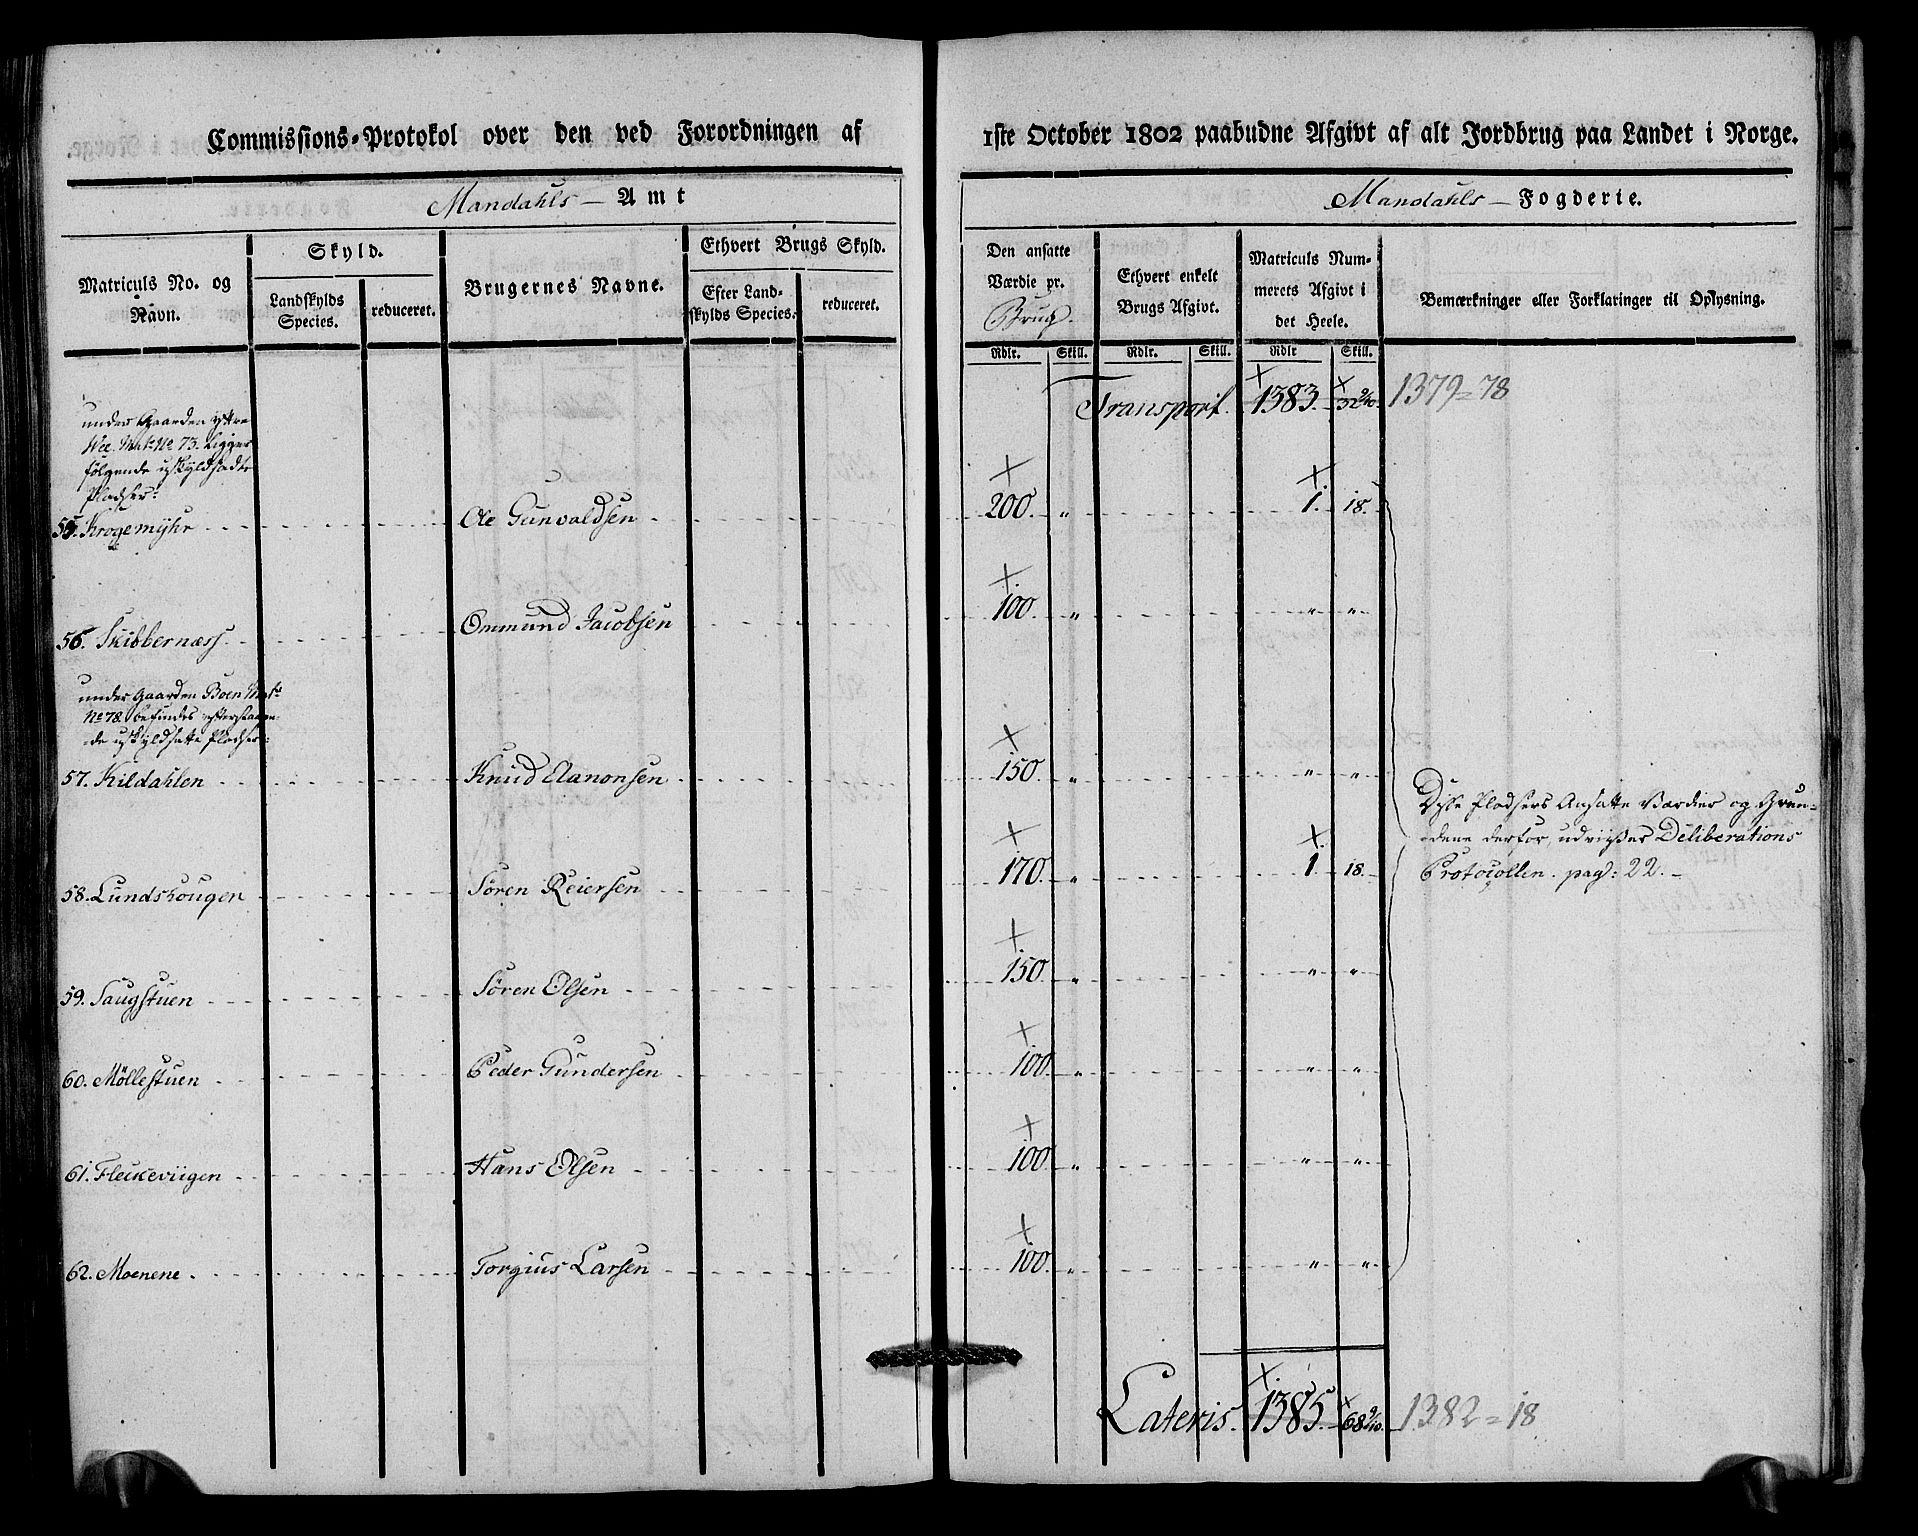 Commissions-Protokol over den ved Forordningen af
1ste October 1802 paabudne Afgivt af alt Jordbrug paa Landet i Norge.
Mandahls Amt
Mandahls Fogderie.
Matriculs No. og Navn.
Skyld.
Landskylds Species.
reduceret.
Brugernes Navne.
Ethvert Brugs Skyld.
Efter Landskylds Species.
reduceret.
Den ansatte Værdie pr. Brug.
Ethvert enkelt Brugs Afgivt.
Matriculs Nummerets Afgivt i det Heele.
Bemærkninger eller Forklaringer til Oplysning.
Rdlr. Skill. Rdlr. Skill. Rdlr Skill.
Transport. 1383. 32 9/10. 1379=78
under Gaarden ystre
Wee. Mat: No 73. Ligger
følgende uskyldsadte
Pladser:
55. Krogemyhr Ole Gunvaldsen 200. „ 1. 18.
56. Skibbernæss Ommund Jacobsen 100. „ „ „
under Gaarden Boen Mat:
No 78. befindes efterstaaen-
de uskyldsatte Pladser:
57. Kildahlen Knud Aanonsen 150. „ „ „
Disse Pladsers Ansatte Værdier og Grun-
dene derfor, udviiser Deliberations
Protocollen. pag: 22.
58. Lundshougen Søren Reiersen 170. „ 1. 18.
59. Saugstuen Søren Olsen 150. „ „ „
60. Møllestuen Peder Gundersen 100. „ „ „
61. Fleckeviigen Hans Olsen 100. „ „ „
62. Moenene. Torgius Larsen 100. „ „ „
Lateris. 1385. 68 9/10. 1382=18